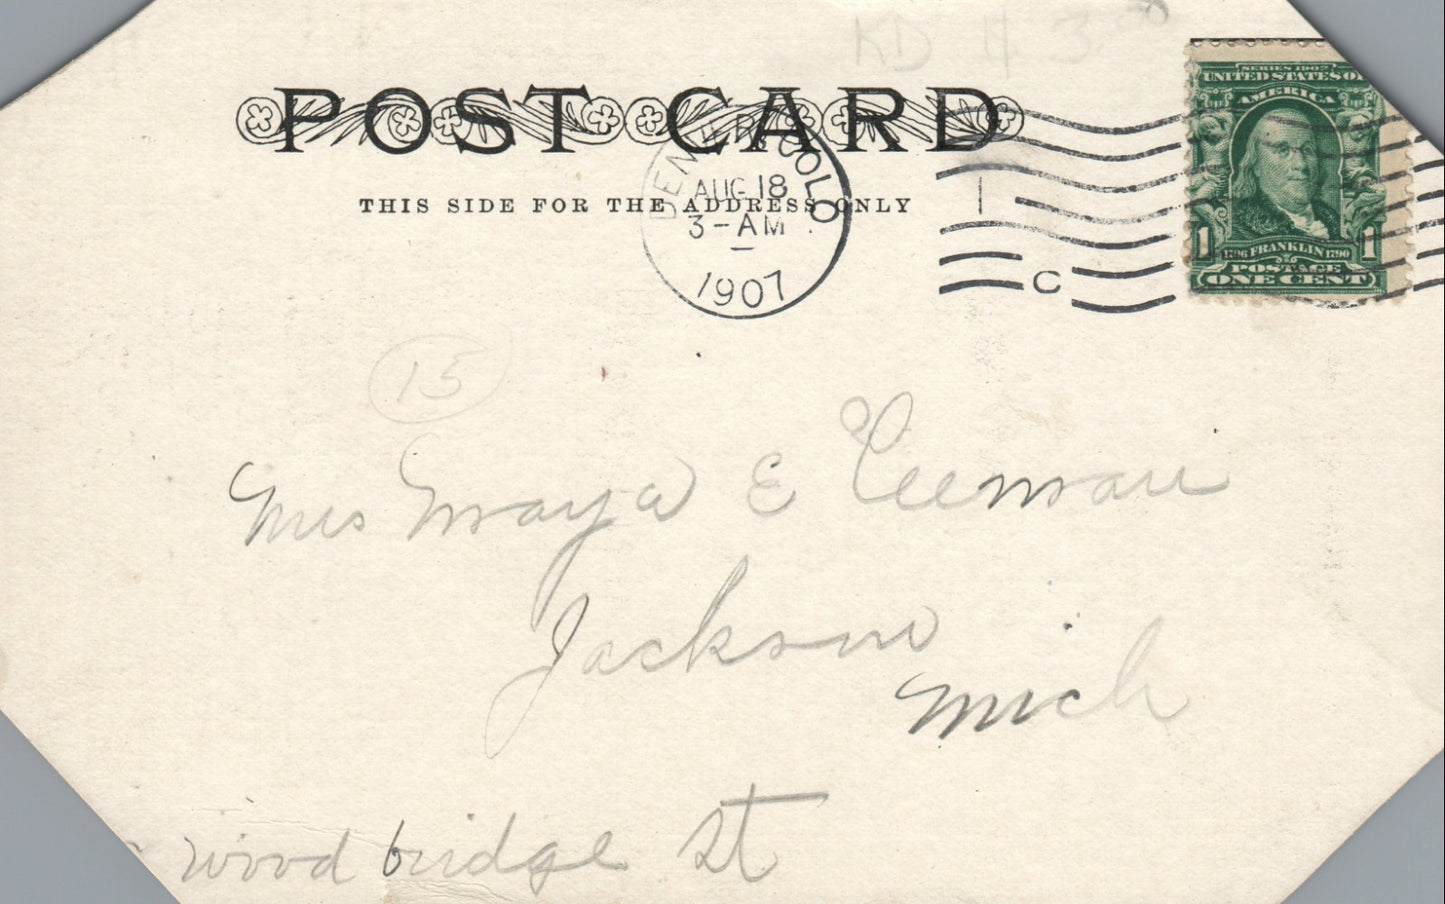 KD # 3.00
POST CARD
THIS SIDE FOR THE ADDRESS ONLY
DENVER, COLO
AUG 18
3-AM
1907
1
C
SERIES 1902
UNITED STATES OF
AMERICA
1 1
1706 FRANKLIN 1790
POSTAGE
ONE CENT
15
Mrs May E
Jackson
Mich
Woodbridge St